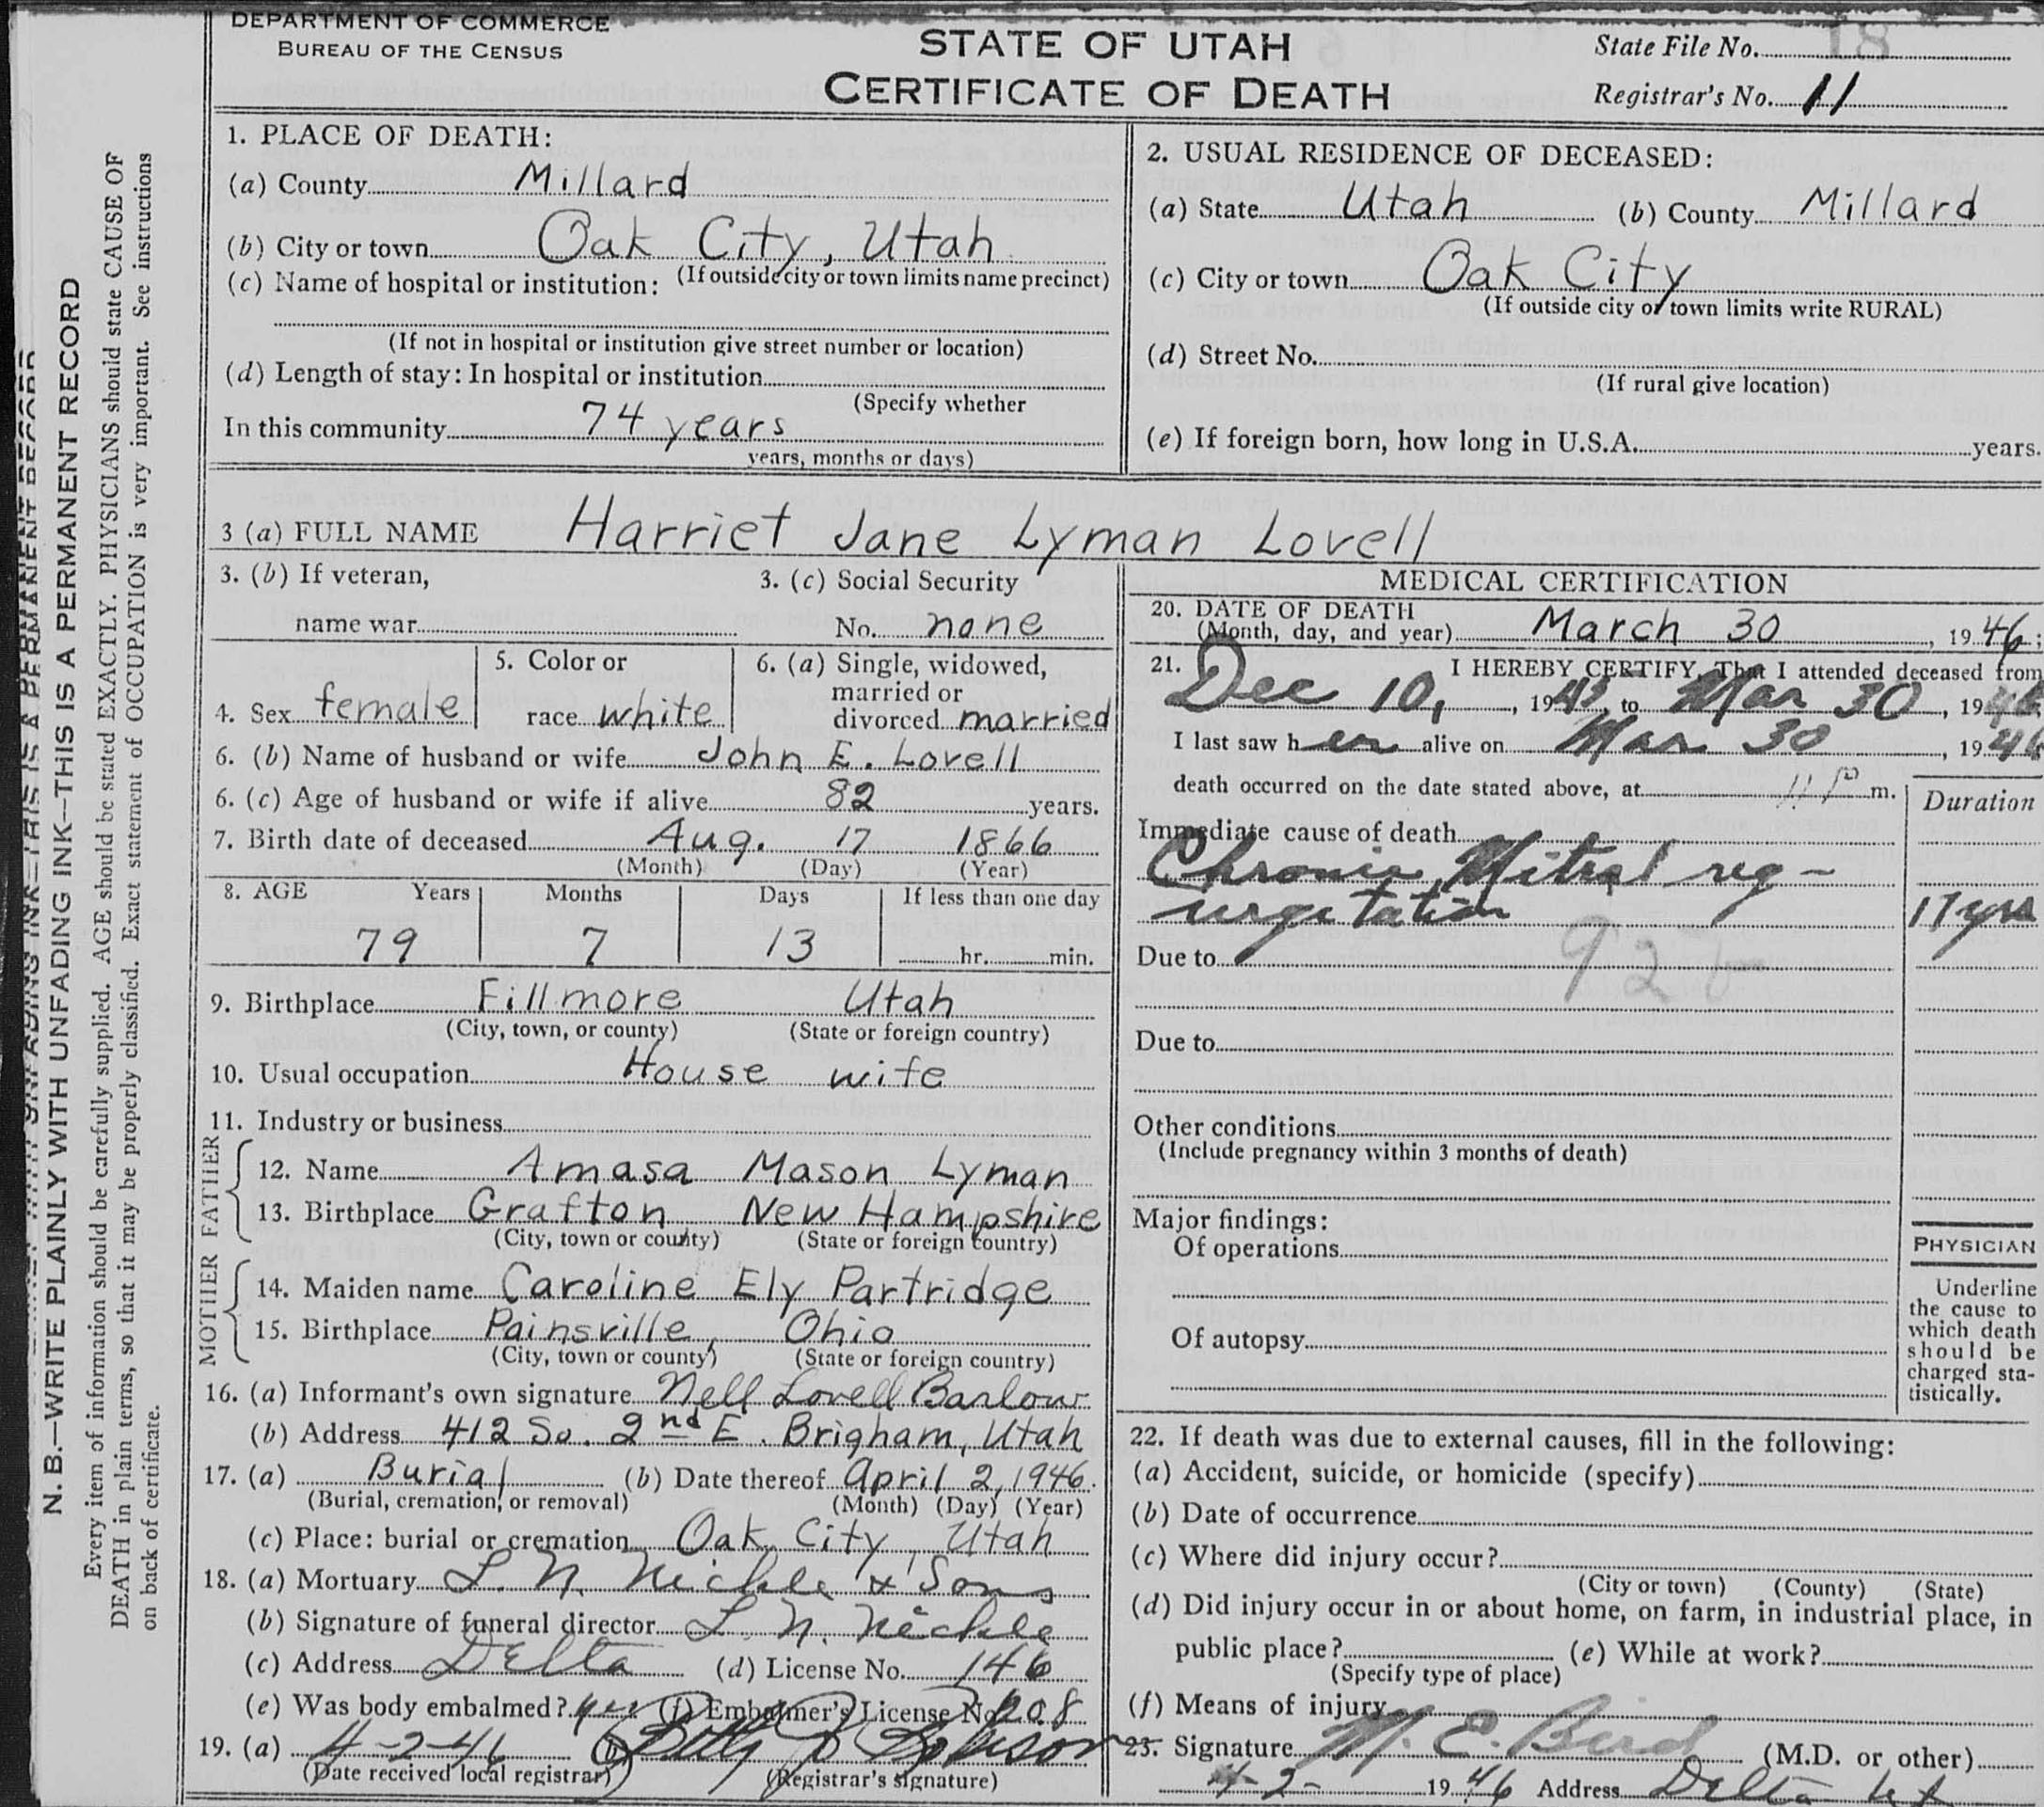 DEPARTMENT OF COMMERCE
BUREAU OF THE CENSUS
STATE OF UTAH
CERTIFICATE OF DEATH
State File No. 18
Registrar's No. 11
N. B.—WRITE PLAINLY WITH UNFADING INK—THIS IS A PERMANENT RECORD
Every item of information should be carefully supplied. AGE should be stated EXACTLY. PHYSICIANS should state CAUSE OF
DEATH in plain terms, so that it may be properly classified. Exact statement of OCCUPATION is very important. See instructions
on back of certificate.
1. PLACE OF DEATH:
(a) County Millard
(b) City or town Oak City, Utah
(If outside city or town limits name precinct)
(c) Name of hospital or institution:
(If not in hospital or institution give street number or location)
(d) Length of stay: In hospital or institution
(Specify whether
In this community 74 years
years, months or days)
2. USUAL RESIDENCE OF DECEASED:
(a) State Utah (b) County Millard
(c) City or town Oak City
(If outside city or town limits write RURAL)
(d) Street No.
(If rural give location)
(e) If foreign born, how long in U.S.A. years.
3 (a) FULL NAME Harriet Jane Lyman Lovell
3. (b) If veteran,
name war
3. (c) Social Security
No. none
4. Sex female
5. Color or
race white
6. (a) Single, widowed,
married or
divorced married
6. (b) Name of husband or wife John E. Lovell
6. (c) Age of husband or wife if alive 82 years.
7. Birth date of deceased Aug. 17 1866
(Month) (Day) (Year)
8. AGE Years Months Days If less than one day
79 7 13 hr. min.
9. Birthplace Fillmore Utah
(City, town, or county) (State or foreign country)
10. Usual occupation House wife
11. Industry or business
FATHER
12. Name Amasa Mason Lyman
13. Birthplace Grafton New Hampshire
(City, town or county) (State or foreign country)
MOTHER
14. Maiden name Caroline Ely Partridge
15. Birthplace Painsville, Ohio
(City, town or county) (State or foreign country)
16. (a) Informant's own signature Nell Lovell Barlow
(b) Address 412 So. 2nd E. Brigham, Utah
17. (a) Burial (b) Date thereof April 2, 1946.
(Burial, cremation, or removal) (Month) (Day) (Year)
(c) Place: burial or cremation Oak City, Utah
18. (a) Mortuary L. N. Nickle & Sons
(b) Signature of funeral director L. N. Nickle
(c) Address Delta (d) License No. 146
(e) Was body embalmed? yes (f) Embalmer's License No. 208
19. (a) 4-2-46 (b)
(Date received local registrar) (Registrar's signature)
MEDICAL CERTIFICATION
20. DATE OF DEATH
(Month, day, and year) March 30, 1946;
21. I HEREBY CERTIFY, That I attended deceased from
Dec 10, 1945, to Mar 30, 1946;
I last saw her alive on Mar 30, 1946
death occurred on the date stated above, at 11 P m.
Duration
Immediate cause of death
Chronic Mitral reg-
urgitation 17 yrs
Due to 92b
Due to
Other conditions
(Include pregnancy within 3 months of death)
Major findings:
Of operations
Of autopsy
PHYSICIAN
Underline
the cause to
which death
should be
charged sta-
tistically.
22. If death was due to external causes, fill in the following:
(a) Accident, suicide, or homicide (specify)
(b) Date of occurrence
(c) Where did injury occur?
(City or town) (County) (State)
(d) Did injury occur in or about home, on farm, in industrial place, in
public place? (e) While at work?
(Specify type of place)
(f) Means of injury
23. Signature M. E. Bird (M.D. or other)
4-2- 1946 Address Delta Ut